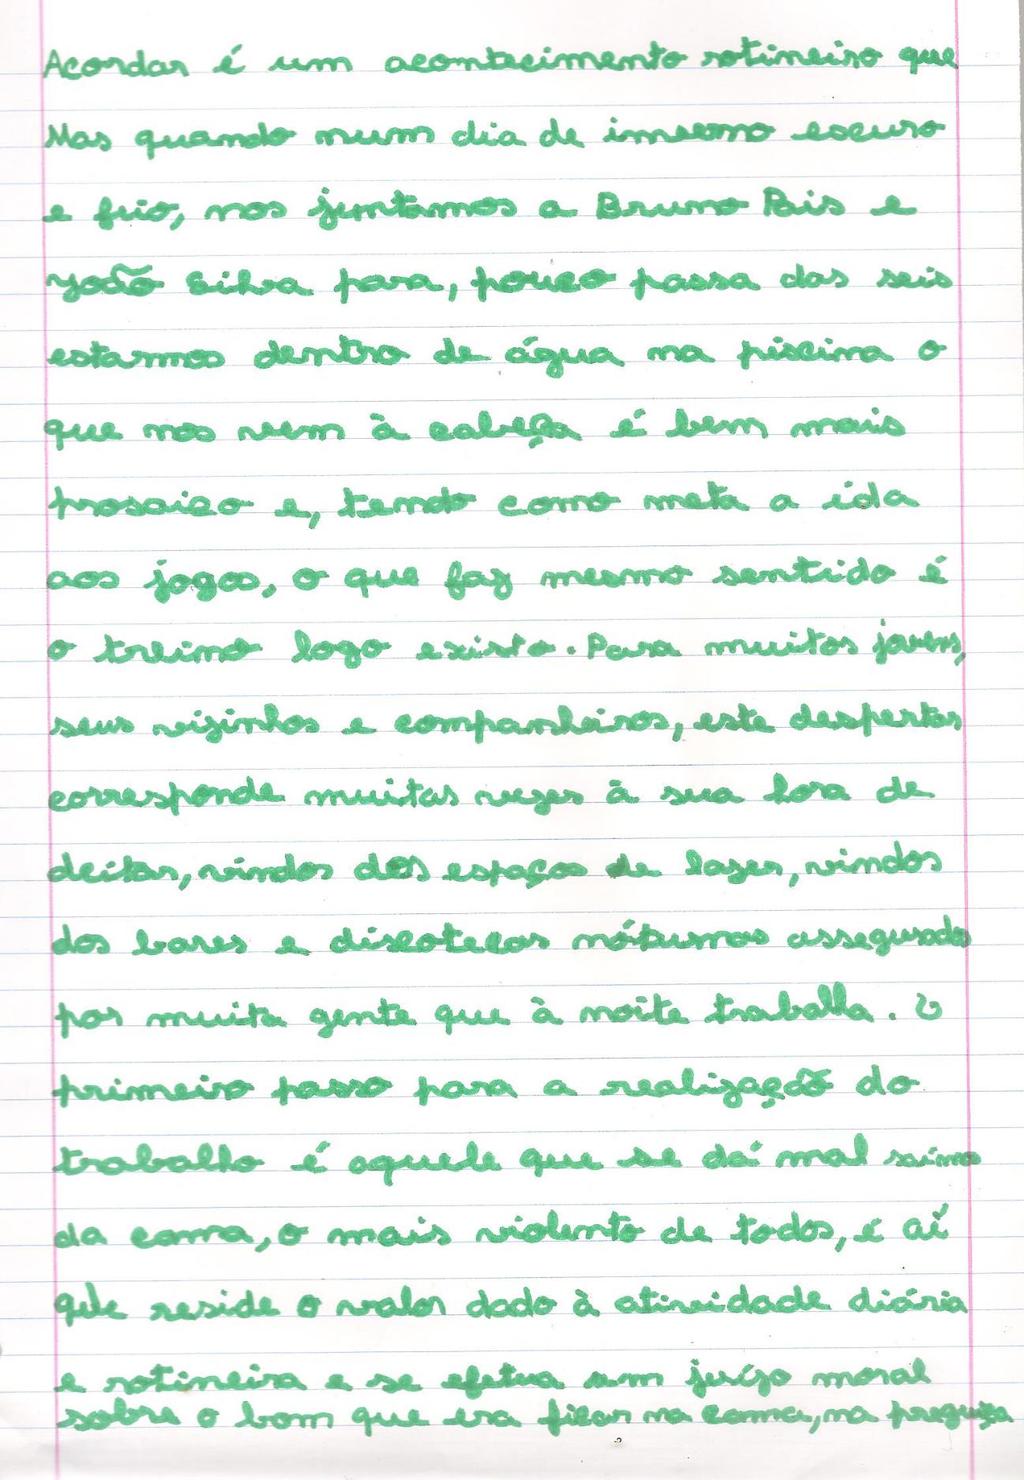 Acordar é um acontecimento rotineiro que
Mas quando num dia de inverno escuro
e frio, nos juntamos a Bruno Pais e
João Silva para, pouco passa das seis
estarmos dentro de água na piscina o
que nos vem à cabeça é bem mais
prosaico e, tendo como meta a ida
aos jogos, o que faz mesmo sentido é
o treino logo existo. Para muitos jovens,
seus vizinhos e companheiros, este despertar
corresponde muitas vezes à sua hora de
deitar, vindos dos espaços de lazer, vindos
dos bares e discotecas nóturnas assegurados
por muita gente que à noite traballa. O
primeiro passo para a realização do
trabalho é aquele que se dá mal saímo
da cama, o mais violento de todos, é aí
que reside o valor dado à atividade diária
e rotineira e se efetua um juízo moral
sobre o bom que era ficar na cama, na preguiça